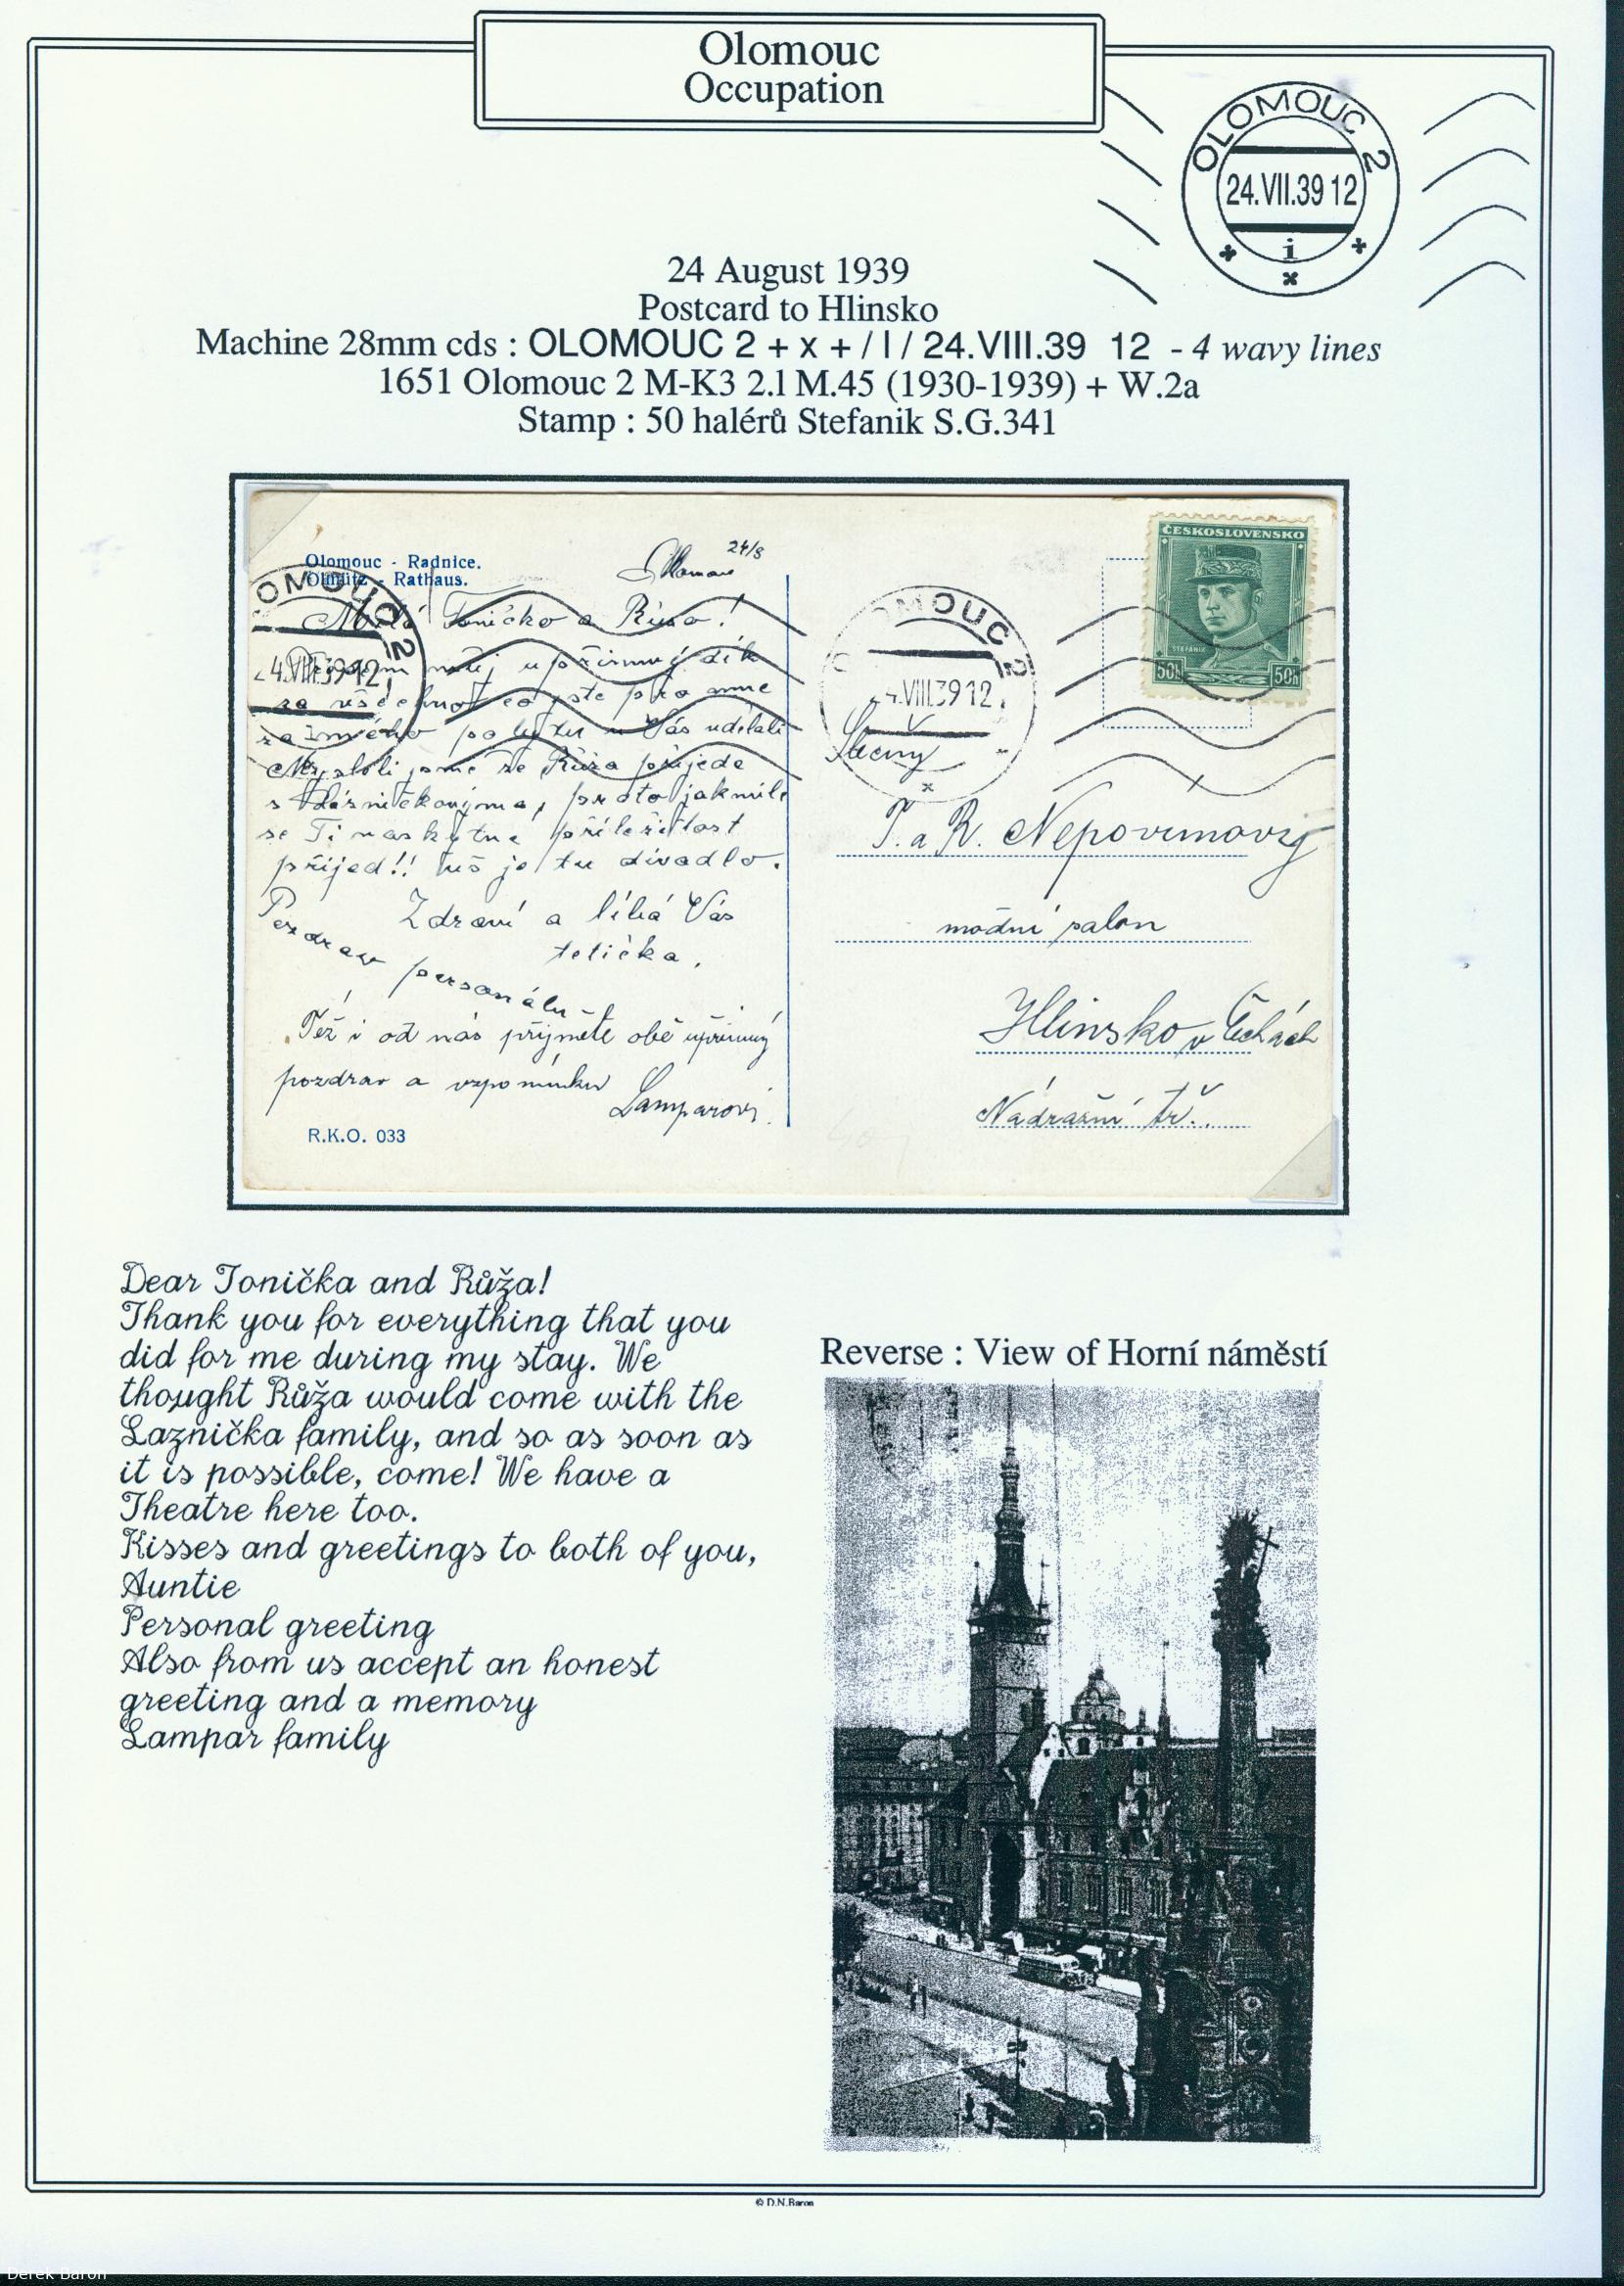 Olomouc
Occupation
OLOMOUC 2
24.VII.39 12
i
24 August 1939
Postcard to Hlinsko
Machine 28mm cds : OLOMOUC 2 + x + / I / 24.VIII.39 12 - 4 wavy lines
1651 Olomouc 2 M-K3 2.1 M.45 (1930-1939) + W.2a
Stamp : 50 halérů Stefanik S.G.341
Olomouc - Radnice.
Olmütz - Rathaus.
Olomouc 24/8
OMOUC 2
4.VIII.39 12
Milá Toničko a Růžo!
můj upřímný dík
za všechno co jste pro mne
za mého pobytu u Vás udělali
Mysleli jsme že Růža přijede
s Lázničkovýma, proto jakmile
se Ti naskytne příležitost
přijed!! Též je tu divadlo.
Zdraví a líbá Vás
tetička.
Pozdrav personálu
Též i od nás přijměte obě upřímný
pozdrav a vzpomínku
Lamparovi.
R.K.O. 033
ČESKOSLOVENSKO
ŠTEFÁNIK
50h 50h
OMOUC 2
4.VIII.39 12
Slečny
T. a R. Nepovímovy
módní salon
Hlinsko v Čechách
Nádražní tř..
Dear Tonička and Růža!
Thank you for everything that you
did for me during my stay. We
thought Růža would come with the
Laznička family, and so as soon as
it is possible, come! We have a
Theatre here too.
Kisses and greetings to both of you,
Auntie
Personal greeting
Also from us accept an honest
greeting and a memory
Lampar family
Reverse : View of Horní náměstí
© D.N.Baron
Derek Baron